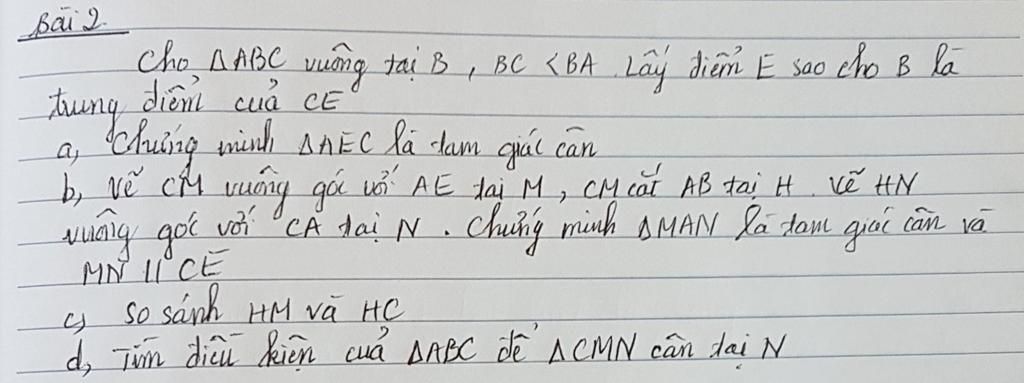 Bài 2.
Cho ΔABC vuông tại B, BC < BA. Lấy điểm E sao cho B là
trung điểm của CE
a, Chứng minh ΔAEC là tam giác cân
b, Vẽ CM vuông góc với AE tại M, CM cắt AB tại H. Vẽ HN
vuông góc với CA tại N. Chứng minh ΔMAN là tam giác cân và
MN // CE
c, so sánh HM và HC
d, Tìm điều kiện của ΔABC để ΔCMN cân tại N